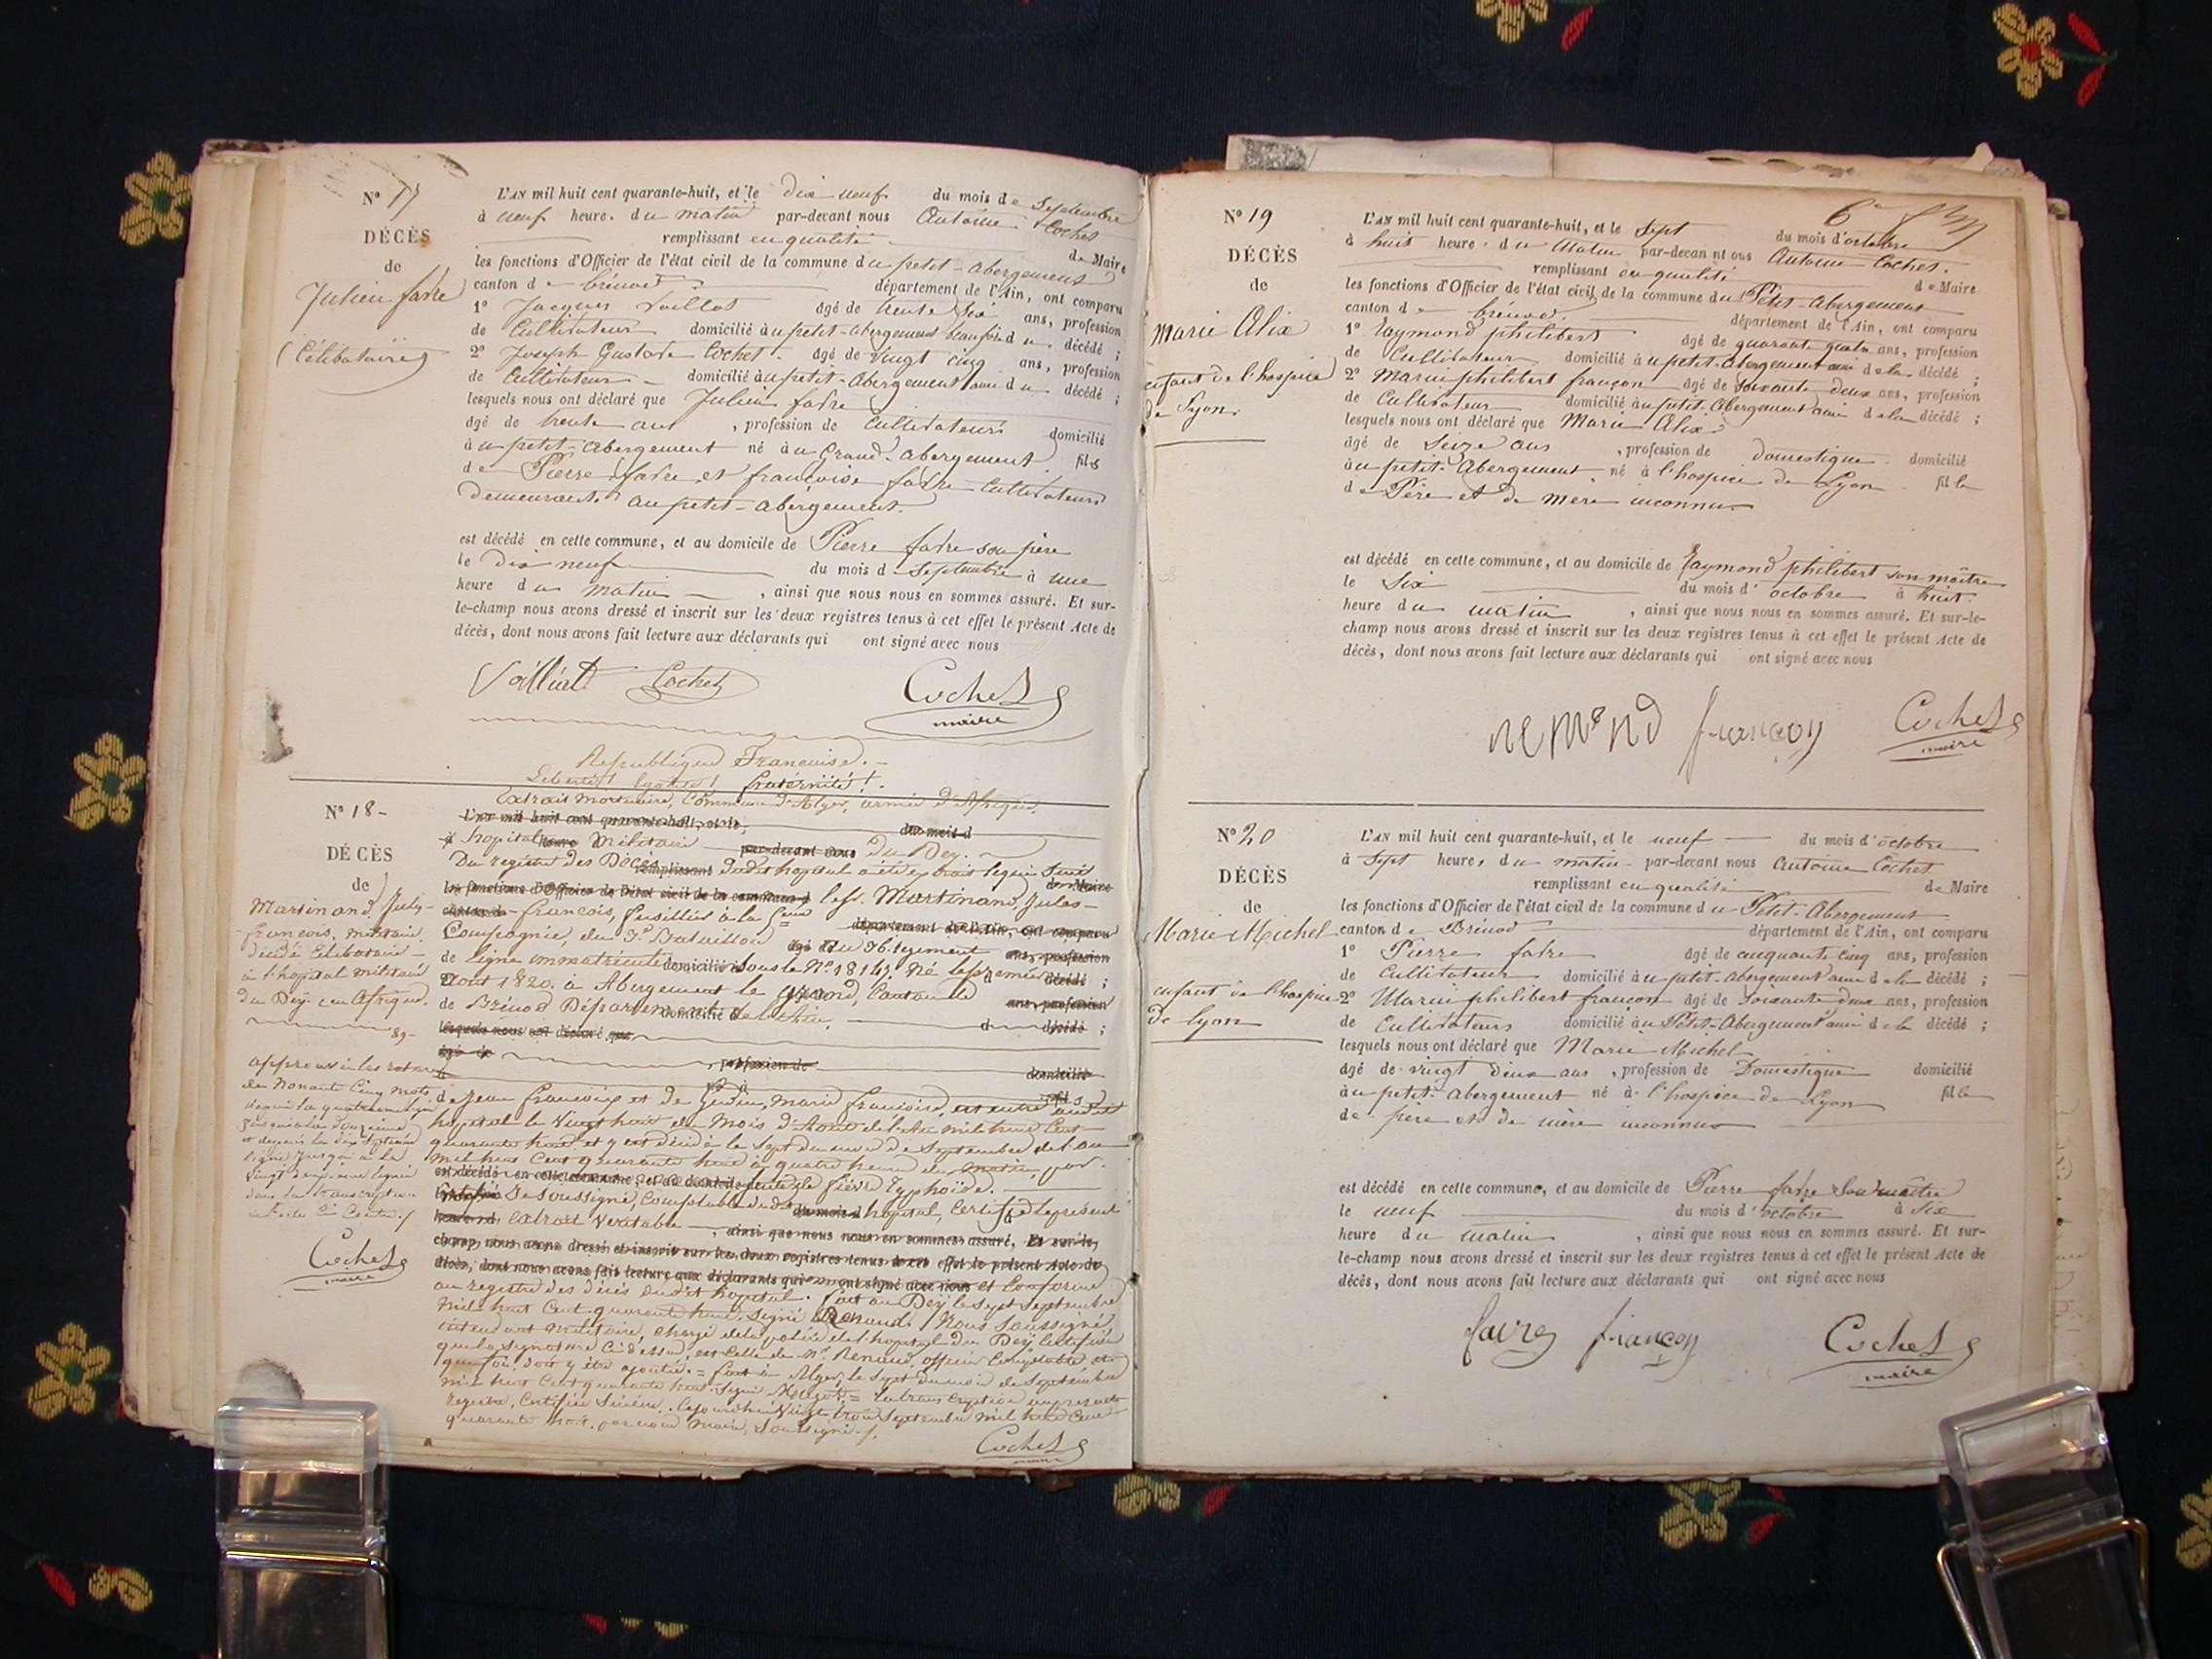 N° 17
DÉCÈS
de
Julien favre
Célibataire
L'AN mil huit cent quarante-huit, et le dix neuf du mois de Septembre
à neuf heures du matin par-devant nous Antoine Cochet
remplissant en qualité de Maire
les fonctions d'Officier de l'état civil de la commune du petit-abergement
canton de brénod département de l'Ain, ont comparu
1° Jacques Vaillat âgé de trente six ans, profession
de Cultivateur domicilié au petit-abergement beaufrère du décédé ;
2° Joseph Gustave Cochet âgé de vingt cinq ans, profession
de Cultivateur domicilié au petit-abergement ami du décédé ;
lesquels nous ont déclaré que Julien favre
âgé de trente ans, profession de Cultivateur domicilié
au petit-abergement né au Grand-abergement fils
de Pierre favre et françoise favre Cultivateurs
demeurants au petit-abergement.
est décédé en cette commune, et au domicile de Pierre favre son père
le dix neuf du mois de Septembre à une
heure du matin, ainsi que nous nous en sommes assuré. Et sur-
le-champ nous avons dressé et inscrit sur les deux registres tenus à cet effet le présent Acte de
décès, dont nous avons fait lecture aux déclarants qui ont signé avec nous
Vailliat Cochet Cochet
maire
République Française.
Liberté! égalité! fraternité!
N° 18
DÉCÈS
de
Martinand, Jules-
françois, militaire
décédé célibataire
à l'hopital militaire
du Dey en Afrique.
Extrait mortuaire, Commune d'Alger, armée d'Afrique,
hopital Militaire du Dey.
Du registre des Décès dudit hopital a été extrait ce qui suit
le Sr. Martinand, Jules-
françois, fusillier à la
Compagnie, du 3e Bataillon du 36 regiment
de ligne immatriculé sous le N° 18149. Né le premier
Aout 1820. à Abergement le grand, Canton
de Brénod Département de l'Ain,
de Jean françois et de Gudin, Marie françoise, est entré audit
hopital le Vingt huit du Mois d'Aout de l'An mil huit Cent
quarante huit et y est décédé le Sept du mois de Septembre de l'an
mil huit Cent quarante huit à quatre heures du matin, par
suite de fièvre Typhoïde.
Je soussigné, Comptable dudit hopital, Certifie le présent
extrait Véritable
et Conforme
au registre des décès dudit hopital. fait au Dey le Sept Septembre
mil huit Cent quarante huit. Signé Renaud. Nous Soussigné,
intendant Militaire, chargé de la police de l'hopital du Dey Certifions
que la signature Ci-dessus, est celle de Mr. Renaud, officier Comptable et
que foi doit y être ajoutée. = fait à Alger, le Sept du mois de Septembre
mil huit Cent quarante huit. Signé
Certifiée Sincère, Vingt trois Septembre mil huit Cent
quarante huit, par nous Maire, Soussigné.
Cochet
maire
Cochet
maire
N° 19
DÉCÈS
de
Marie Alix
enfant de l'hospice
de Lyon.
L'AN mil huit cent quarante-huit, et le Sept du mois d'octobre
à huit heures du Matin par-devant nous Antoine Cochet.
remplissant en qualité de Maire
les fonctions d'Officier de l'état civil de la commune du Petit-Abergement
canton de brénod. département de l'Ain, ont comparu
1° Raymond philibert âgé de quarante quatre ans, profession
de Cultivateur domicilié au petit-Abergement ami de la décédé ;
2° Marin philibert françon âgé de Soixante deux ans, profession
de Cultivateur domicilié au petit-Abergement ami de la décédé ;
lesquels nous ont déclaré que Marie Alix
âgé de Seize ans, profession de domestique domicilié
au petit-Abergement né à l'hospice de Lyon fille
de Père et de mère inconnus
est décédé en cette commune, et au domicile de Raymond philibert son maître
le Six du mois d'octobre à huit
heure du matin, ainsi que nous nous en sommes assuré. Et sur-le-
champ nous avons dressé et inscrit sur les deux registres tenus à cet effet le présent Acte de
décès, dont nous avons fait lecture aux déclarants qui ont signé avec nous
remond françon Cochet
maire
N° 20
DÉCÈS
de
Marie Michel
enfant de l'hospice
de Lyon
L'AN mil huit cent quarante-huit, et le neuf du mois d'octobre
à Sept heures du matin par-devant nous Antoine Cochet
remplissant en qualité de Maire
les fonctions d'Officier de l'état civil de la commune du Petit-Abergement
canton de Brénod département de l'Ain, ont comparu
1° Pierre favre âgé de cinquante cinq ans, profession
de Cultivateur domicilié au petit-abergement ami de la décédé ;
2° Marin philibert françon âgé de Soixante deux ans, profession
de Cultivateurs domicilié au Petit-Abergement ami de la décédé ;
lesquels nous ont déclaré que Marie Michel
âgé de vingt deux ans, profession de Domestique domicilié
au petit-Abergement né à l'hospice de Lyon fille
de père et de mère inconnus
est décédé en cette commune, et au domicile de Pierre favre Son maître
le neuf du mois d'octobre à Six
heure du matin, ainsi que nous nous en sommes assuré. Et sur-
le-champ nous avons dressé et inscrit sur les deux registres tenus à cet effet le présent Acte de
décès, dont nous avons fait lecture aux déclarants qui ont signé avec nous
favre françon Cochet
maire